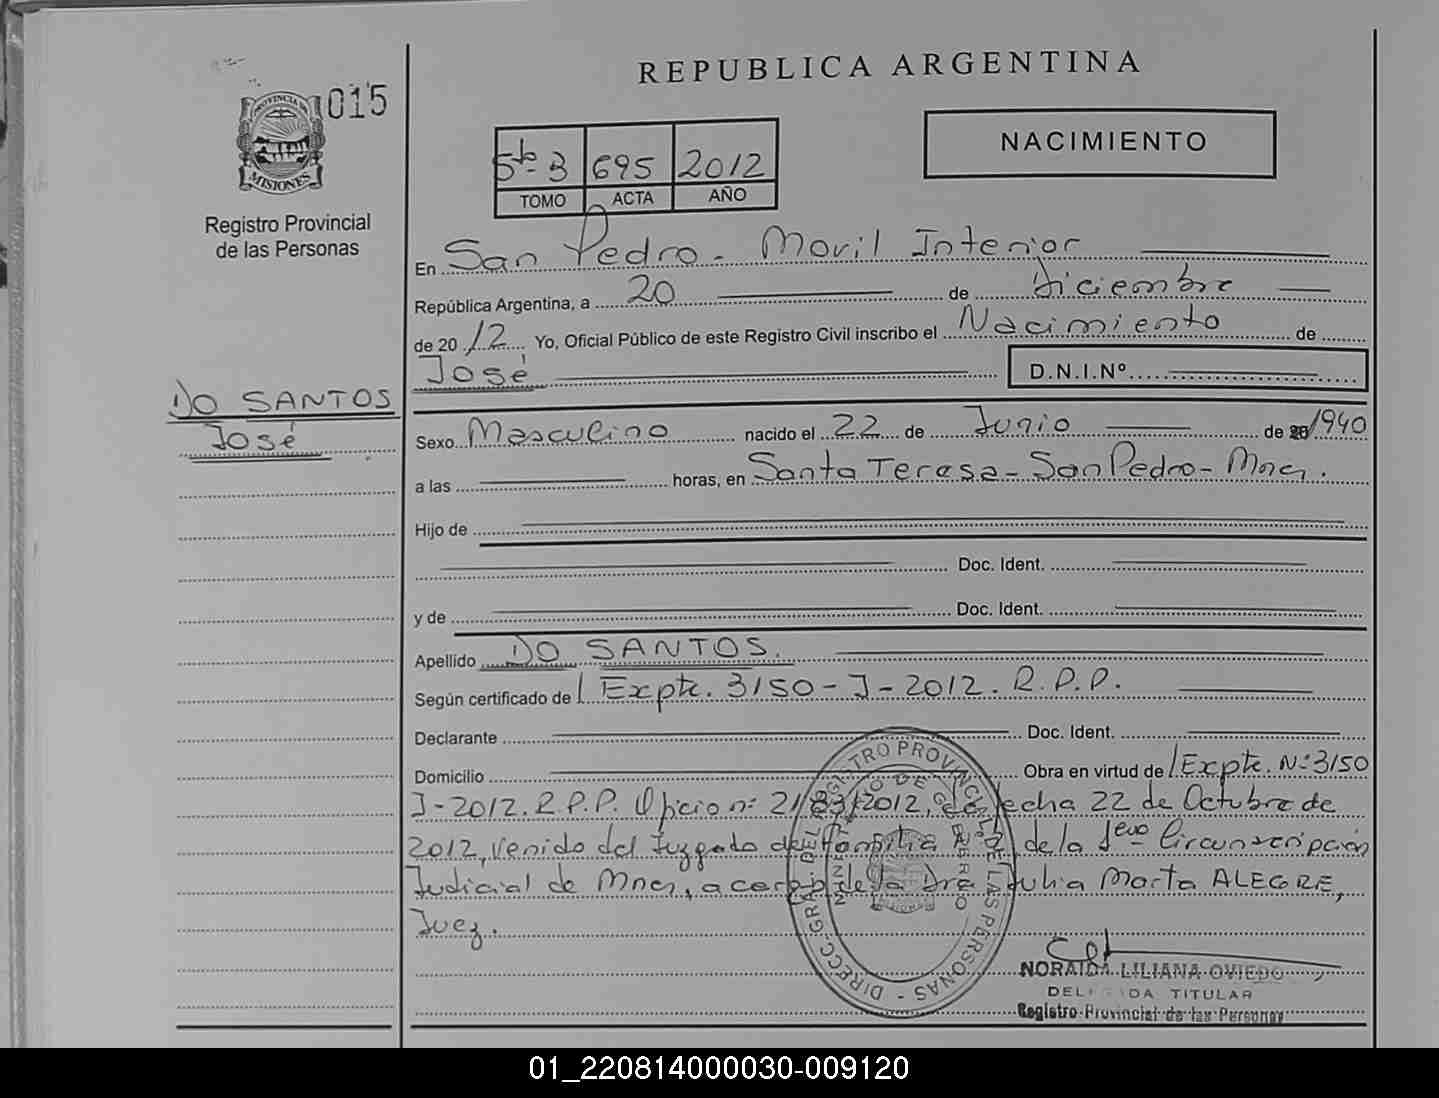 REPUBLICA ARGENTINA
015
PROVINCIA DE
MISIONES
Registro Provincial
de las Personas
NACIMIENTO
5to 3 695 2012
TOMO ACTA AÑO
En San Pedro - Movil Interior
República Argentina, a 20 de Diciembre
de 20 12 Yo, Oficial Público de este Registro Civil inscribo el Nacimiento de
José D.N.I.Nº
DO SANTOS
José
Sexo Masculino nacido el 22 de Junio de 1940
a las horas, en Santa Teresa - San Pedro - Mnes.
Hijo de
Doc. Ident.
y de Doc. Ident.
Apellido DO SANTOS.
Según certificado de Expte. 3150 - J - 2012. R.P.P.
Declarante Doc. Ident.
Domicilio Obra en virtud de Expte. Nº 3150
J - 2012. R.P.P. Oficio nº 2183/2012, de fecha 22 de Octubre de
2012, venido del Juzgado de Familia de la 1era Circunscripción
Judicial de Mnes, a cargo de la Dra Julia Marta ALEGRE,
Juez.
DIRECC. GRAL. DEL REGISTRO PROVINCIAL DE LAS PERSONAS
NORAIDA LILIANA OVIEDO
DELEGADA TITULAR
Registro Provincial de las Personas
01_220814000030-009120